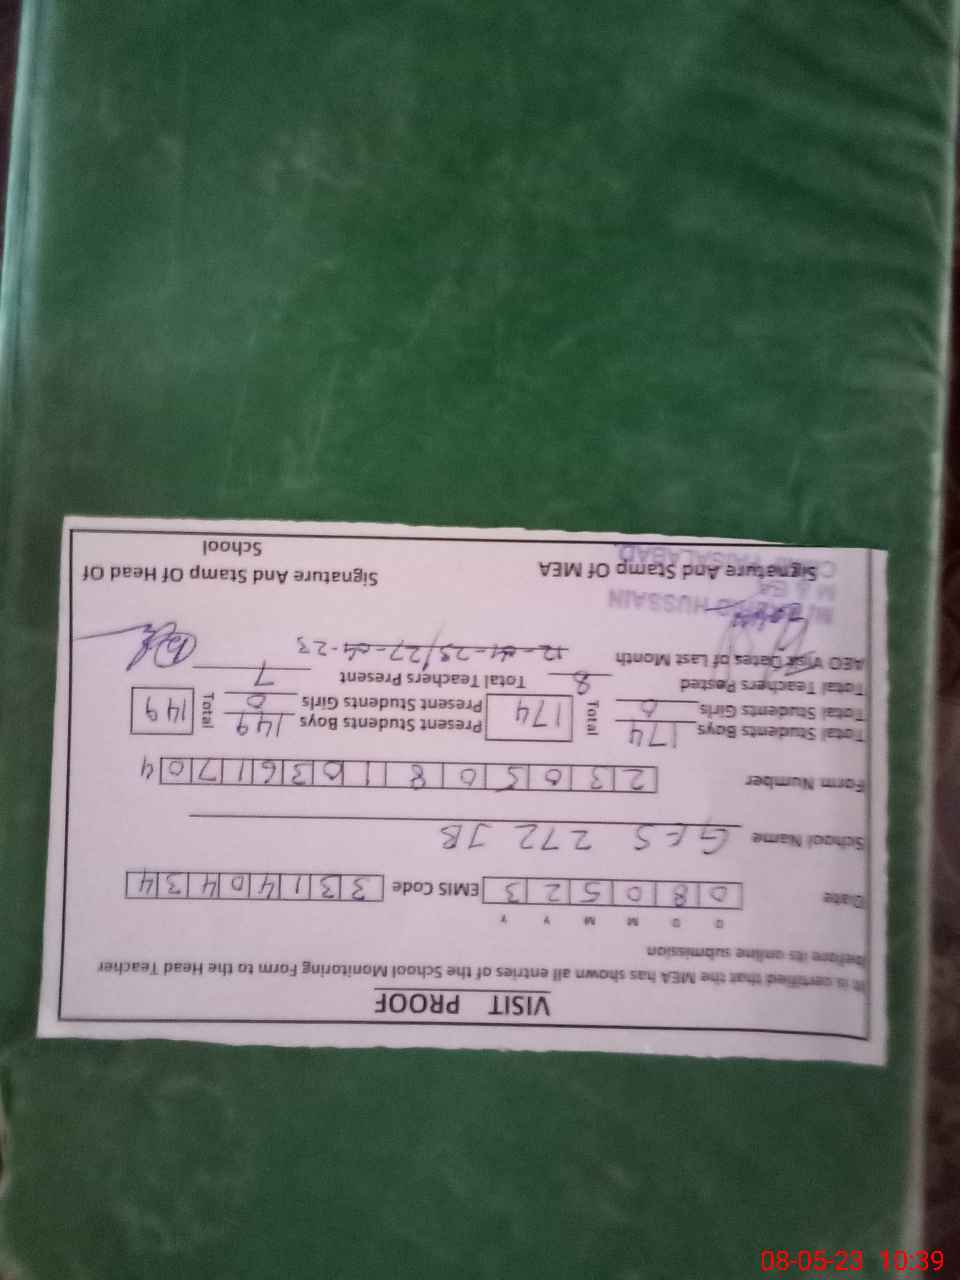 VISIT PROOF
It is certified that the MEA has shown all entries of the School Monitoring Form to the Head Teacher
before its online submission
D D M M Y Y
Date 0 8 0 5 2 3 EMIS Code 3 3 1 4 0 4 3 4
School Name GES 272 JB
Form Number 2 3 0 5 0 8 1 0 3 6 1 7 0 4
Total Students Boys 174 Total 174 Present Students Boys 149 Total 149
Total Students Girls 0 Present Students Girls 0
Total Teachers Posted 8 Total Teachers Present 7
AEO Visit Dates of Last Month 12-04-23/27-04-23
HUSSAIN
Signature And Stamp Of MEA Signature And Stamp Of Head Of
School
FAISALABAD
08-05-23 10:39